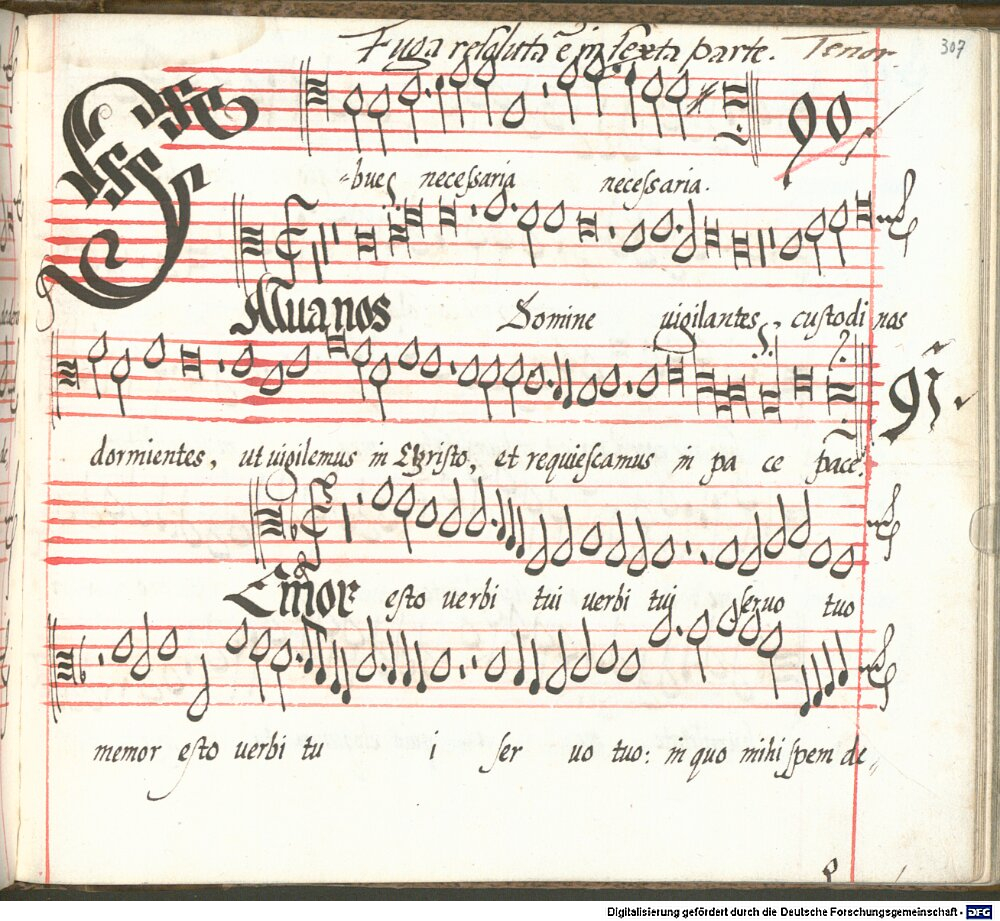 Fuga resoluta ē in sexta parte. Tenor. 307
-bus necessaria necessaria.
90
Salua nos Domine uigilantes, custodi nos
dormientes, ut uigilemus in Christo, et requiescamus in pa ce pace.
91
Memor esto uerbi tui uerbi tui seruo tuo
memor esto uerbi tu i ser uo tuo: in quo mihi spem de-
Digitalisierung gefördert durch die Deutsche Forschungsgemeinschaft - DFG